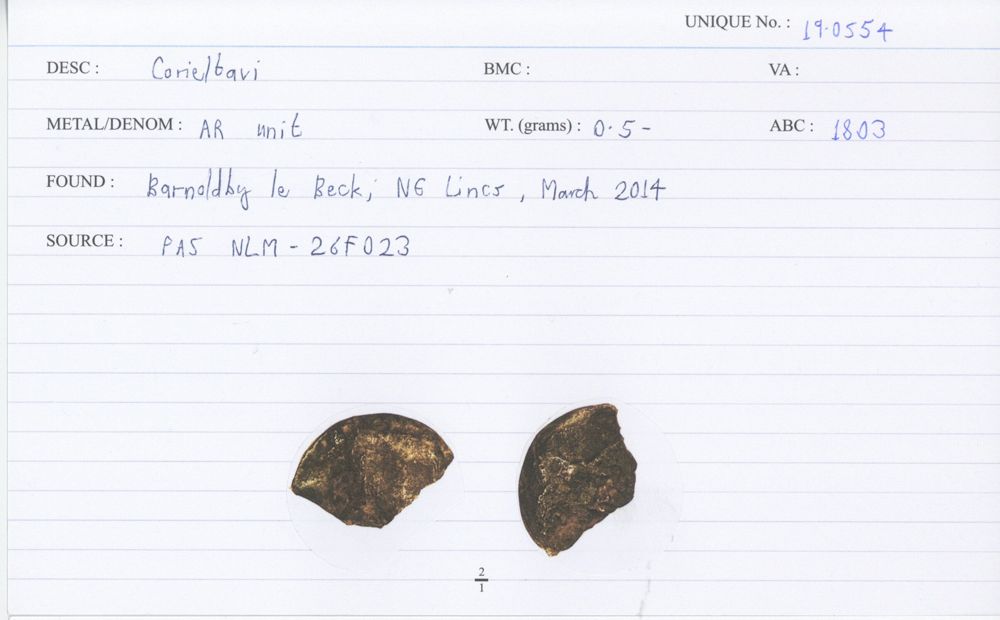 UNIQUE No. : 19.0554
DESC : Corieltavi BMC : VA :
METAL/DENOM : AR unit WT. (grams) : 0.5- ABC : 1803
FOUND : Barnoldby le Beck, NE Lincs, March 2014
SOURCE : PAS NLM - 26F023
2
1